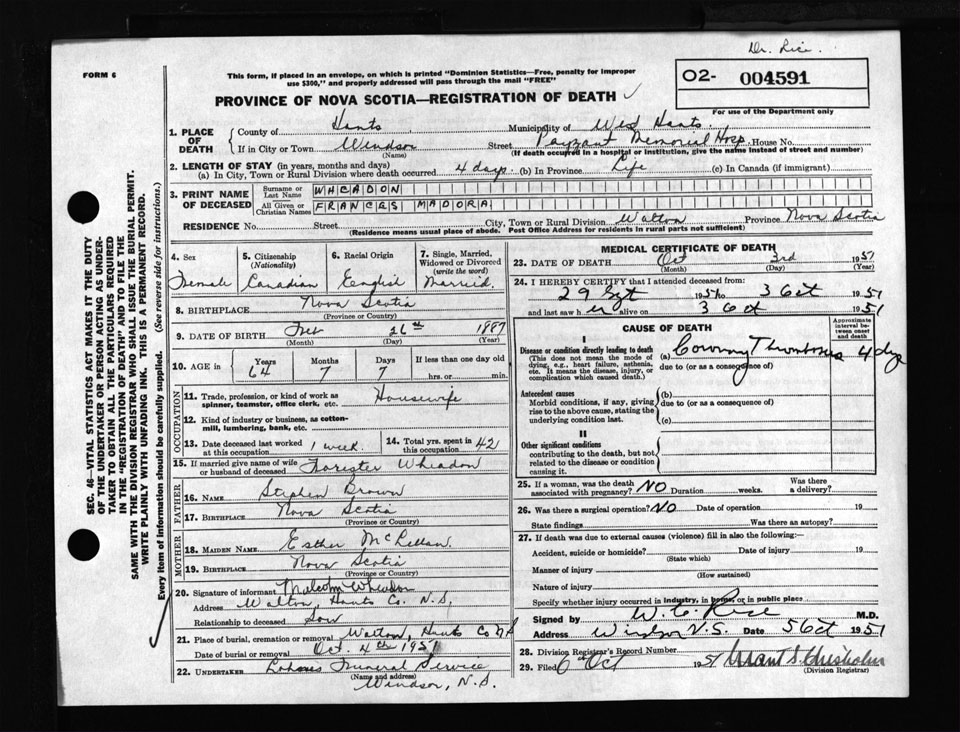 Dr. Rice.
FORM 6
This form, if placed in an envelope, on which is printed "Dominion Statistics—Free, penalty for improper
use $300," and properly addressed will pass through the mail "FREE"
O2- 004591
PROVINCE OF NOVA SCOTIA—REGISTRATION OF DEATH
For use of the Department only
1. PLACE OF DEATH
County of Hants Municipality of West Hants.
If in City or Town Windsor Street Payzant Memorial Hosp. House No.
(Name) (If death occurred in a hospital or institution, give the name instead of street and number)
2. LENGTH OF STAY (in years, months and days)
(a) In City, Town or Rural Division where death occurred 4 days. (b) In Province Life (c) In Canada (if immigrant)
3. PRINT NAME OF DECEASED
Surname or Last Name WHEADON
All Given or Christian Names FRANCES MADORA
RESIDENCE No. Street City, Town or Rural Division Walton Province Nova Scotia
(Residence means usual place of abode. Post Office Address for residents in rural parts not sufficient)
SEC. 46—VITAL STATISTICS ACT MAKES IT THE DUTY
OF THE UNDERTAKER OR PERSON ACTING AS UNDER-
TAKER TO OBTAIN ALL THE PARTICULARS REQUIRED
IN THE "REGISTRATION OF DEATH" AND TO FILE THE
SAME WITH THE DIVISION REGISTRAR WHO SHALL ISSUE THE BURIAL PERMIT.
WRITE PLAINLY WITH UNFADING INK. THIS IS A PERMANENT RECORD.
Every item of information should be carefully supplied. (See reverse side for instructions.)
4. Sex Female
5. Citizenship (Nationality) Canadian
6. Racial Origin English
7. Single, Married, Widowed or Divorced (write the word) Married.
8. BIRTHPLACE Nova Scotia
(Province or Country)
9. DATE OF BIRTH Feb 26th 1887
(Month) (Day) (Year)
10. AGE in Years 64 Months 7 Days 7 If less than one day old
hrs. or min.
OCCUPATION
11. Trade, profession, or kind of work as
spinner, teamster, office clerk, etc. Housewife
12. Kind of industry or business, as cotton-
mill, lumbering, bank, etc.
13. Date deceased last worked
at this occupation 1 week
14. Total yrs. spent in
this occupation 42
15. If married give name of wife
or husband of deceased Forester Wheadon
FATHER
16. NAME Stephen Brown
17. BIRTHPLACE Nova Scotia
(Province or Country)
MOTHER
18. MAIDEN NAME Esther McLellan.
19. BIRTHPLACE Nova Scotia
(Province or Country)
20. Signature of informant Malcolm Wheadon
Address Walton, Hants Co. N.S,
Relationship to deceased Son
21. Place of burial, cremation or removal Walton, Hants Co N S
Date of burial or removal Oct. 4th 1951
22. UNDERTAKER Funeral Service
(Name and address) Windsor, N.S.
MEDICAL CERTIFICATE OF DEATH
23. DATE OF DEATH Oct 3rd 1951
(Month) (Day) (Year)
24. I HEREBY CERTIFY that I attended deceased from:
29 Sept 1951 to 3 Oct 1951
and last saw h er alive on 3 Oct 1951
CAUSE OF DEATH
Approximate interval between onset and death
I
Disease or condition directly leading to death
(This does not mean the mode of
dying, e.g., heart failure, asthenia,
etc. It means the disease, injury, or
complication which caused death.)
(a) Coronary Thrombosis 4 dys
due to (or as a consequence of)
Antecedent causes
Morbid conditions, if any, giving
rise to the above cause, stating the
underlying condition last.
(b)
due to (or as a consequence of)
(c)
II
Other significant conditions
contributing to the death, but not
related to the disease or condition
causing it.
25. If a woman, was the death
associated with pregnancy? NO Duration weeks. Was there
a delivery?
26. Was there a surgical operation? NO Date of operation 19
State findings Was there an autopsy?
27. If death was due to external causes (violence) fill in also the following:—
Accident, suicide or homicide? Date of injury 19
(State which)
Manner of injury
(How sustained)
Nature of injury
Specify whether injury occurred in industry, in home, or in public place
Signed by W. C. Rice M.D.
Address Windsor N.S. Date 5 Oct 1951
28. Division Registrar's Record Number
29. Filed 6th Oct 1951 Chisholm
(Division Registrar)